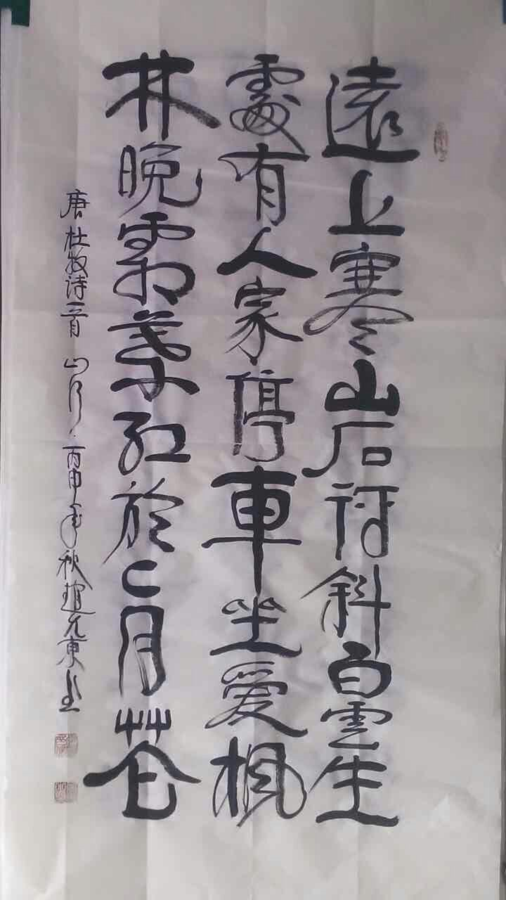 遠上寒山石径斜白雲生
處有人家停車坐愛楓
林晚霜葉红於二月花
唐杜牧诗一首山行丙申年秋趙允東